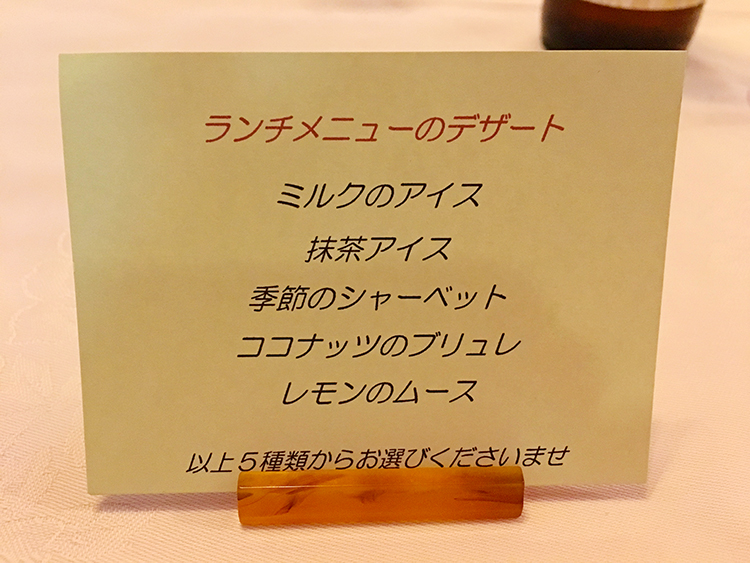 ランチメニューのデザート
ミルクのアイス
抹茶アイス
季節のシャーベット
ココナッツのブリュレ
レモンのムース
以上５種類からお選びくださいませ